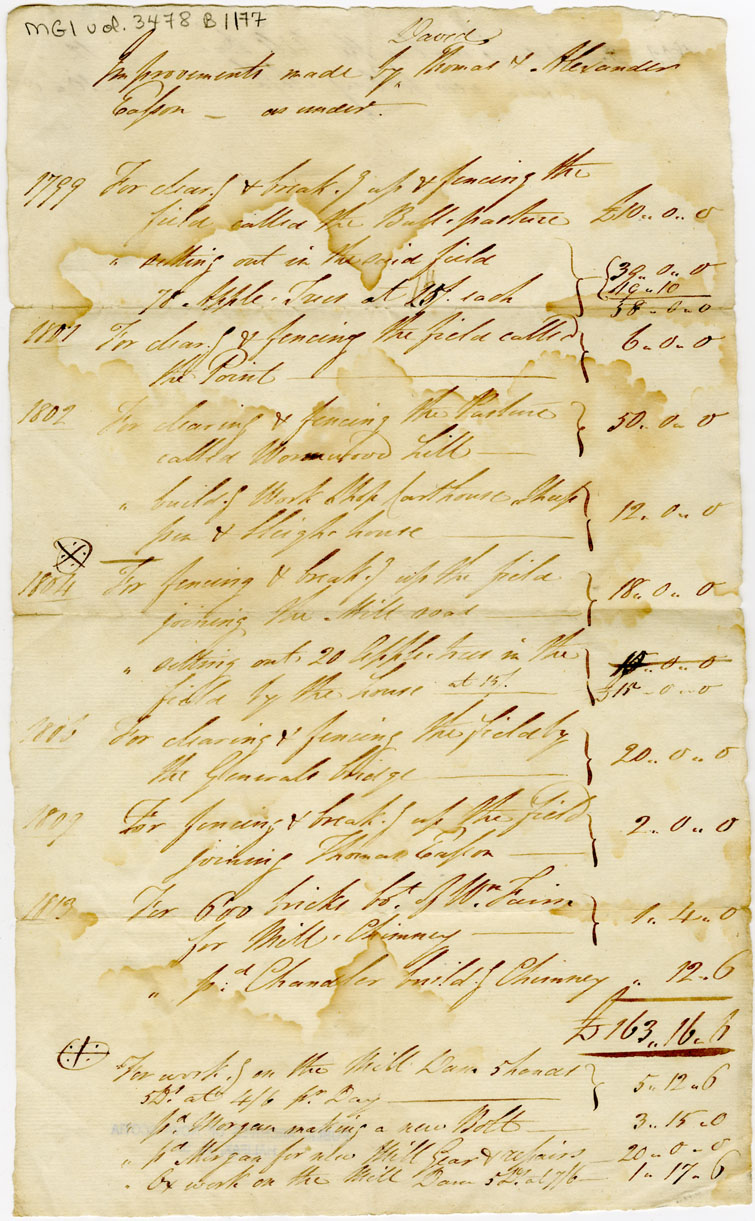 MG1 vol. 3478 B1/77
David
Improvements made by Thomas & Alexander
Easson — as under.
1799 For clear.g & break.g up & fencing the
field called the Bull-pasture £10.. 0.. 0
" setting out in the said field
78 Apple-Trees at each 39.. 0.. 0
19.. 10
58.. 0.. 0
1801 For clear.g & fencing the field called
the Point 6.. 0.. 0
1802 For clearing & fencing the Pasture
called Wormwood Hill 50.. 0.. 0
" build.g Work Shop Carthouse Sheep
pen & Sleigh-house 12.. 0.. 0
1804 For fencing & break.g up the field
joining the Mill road 18.. 0.. 0
" setting out 20 Apple-trees in the 10.. 0.. 0
field by the house at 15/. £15.. 0.. 0
1806 For clearing & fencing the field by
the Generals bridge 20.. 0.. 0
For fencing & break.g up the Field
joining Thomas Easson 2.. 0.. 0
1813 For 600 bricks bot. of Wm
for Mill-Chimney 1.. 4.. 0
" p.d Chandler build.g Chimney " 12.. 6
£163.. 16.. 6
For work.g on the Mill Dam 5 hands
5 Ds. at 4/6 pr. Day 5.. 12.. 6
" pd. Morgan making a new Bolt 3.. 15.. 0
" pd Morgan for new Mill Gear & repairs 20.. 0.. 0
" Ox work on the Mill Dam 5 Ds. at 7/6 1.. 17.. 6